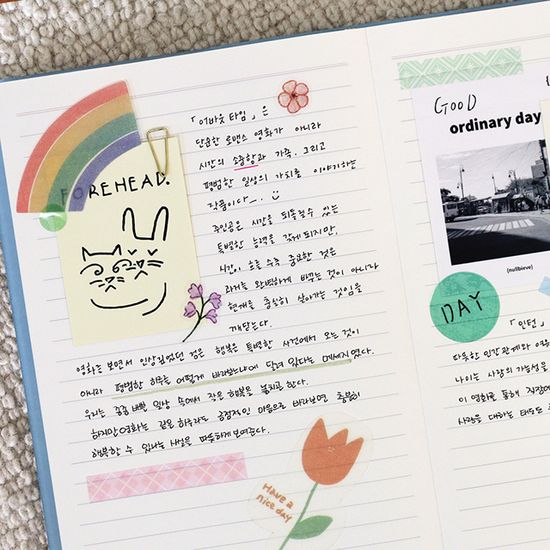 FOREHEAD.
「어바웃 타임」은
단순한 로맨스 영화가 아니라
시간의 소중함과 가족, 그리고
평범한 일상의 가치를 이야기하는
작품이다.
주인공은 시간을 되돌릴 수 있는
특별한 능력을 갖게 되지만,
시간이 흐를수록 중요한 것은
과거를 완벽하게 바꾸는 것이 아니라
현재를 충실히 살아가는 것임을
깨닫는다.
영화를 보면서 인상 깊었던 것은 행복은 특별한 사건에서 오는 것이
아니라 평범한 하루를 어떻게 바라보느냐에 달려 있다는 메세지였다.
우리는 종종 바쁜 일상 속에서 작은 행복을 놓치곤 한다.
하지만 영화는 같은 하루라도 긍정적인 마음으로 바라보면 충분히
행복할 수 있다는 사실을 따뜻하게 보여준다.
Have a
nice day
GOOD
ordinary day
(nullbieve)
DAY
「인턴」
다룻한 인간관계와 영
나이는 사랑의 가능성을
이 영화를 통해 직장
사람을 대하는 태도도